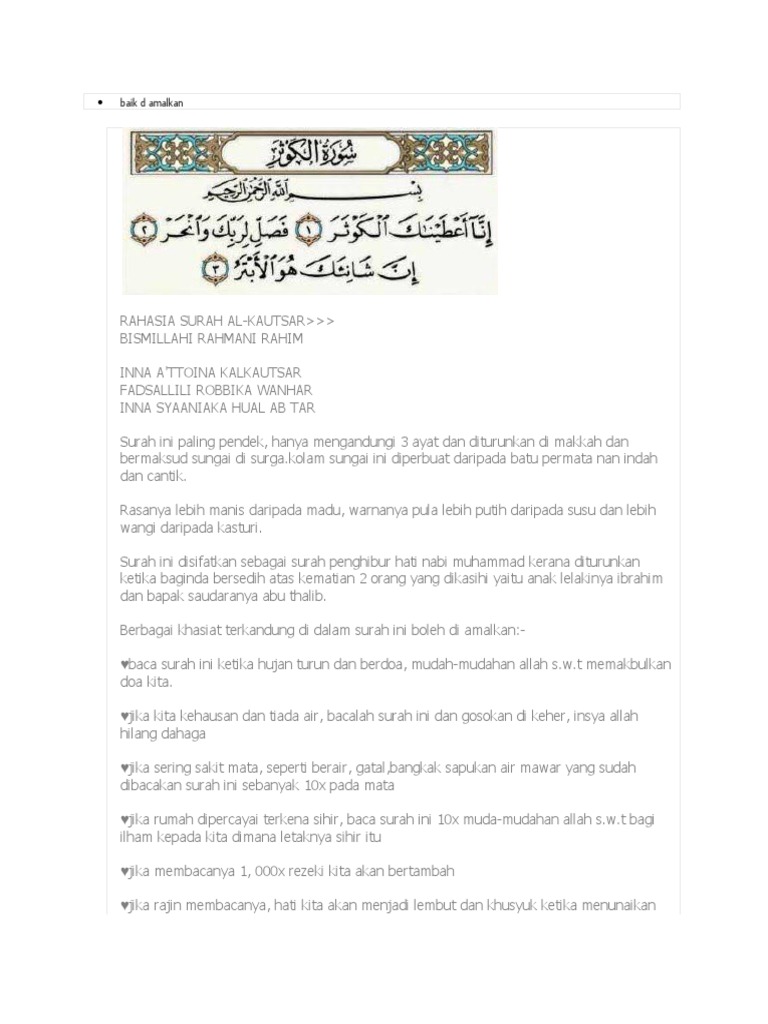 • baik d amalkan
سُورَةُ الْكَوْثَرِ
بِسْمِ اللَّهِ الرَّحْمَٰنِ الرَّحِيمِ
إِنَّآ أَعْطَيْنَٰكَ ٱلْكَوْثَرَ ١ فَصَلِّ لِرَبِّكَ وَٱنْحَرْ ٢
إِنَّ شَانِئَكَ هُوَ ٱلْأَبْتَرُ ٣
RAHASIA SURAH AL-KAUTSAR>>>
BISMILLAHI RAHMANI RAHIM
INNA A'TTOINA KALKAUTSAR
FADSALLILI ROBBIKA WANHAR
INNA SYAANIAKA HUAL AB TAR
Surah ini paling pendek, hanya mengandungi 3 ayat dan diturunkan di makkah dan
bermaksud sungai di surga.kolam sungai ini diperbuat daripada batu permata nan indah
dan cantik.
Rasanya lebih manis daripada madu, warnanya pula lebih putih daripada susu dan lebih
wangi daripada kasturi.
Surah ini disifatkan sebagai surah penghibur hati nabi muhammad kerana diturunkan
ketika baginda bersedih atas kematian 2 orang yang dikasihi yaitu anak lelakinya ibrahim
dan bapak saudaranya abu thalib.
Berbagai khasiat terkandung di dalam surah ini boleh di amalkan:-
♥baca surah ini ketika hujan turun dan berdoa, mudah-mudahan allah s.w.t memakbulkan
doa kita.
♥jika kita kehausan dan tiada air, bacalah surah ini dan gosokan di keher, insya allah
hilang dahaga
♥jika sering sakit mata, seperti berair, gatal,bangkak sapukan air mawar yang sudah
dibacakan surah ini sebanyak 10x pada mata
♥jika rumah dipercayai terkena sihir, baca surah ini 10x muda-mudahan allah s.w.t bagi
ilham kepada kita dimana letaknya sihir itu
♥jika membacanya 1, 000x rezeki kita akan bertambah
♥jika rajin membacanya, hati kita akan menjadi lembut dan khusyuk ketika menunaikan